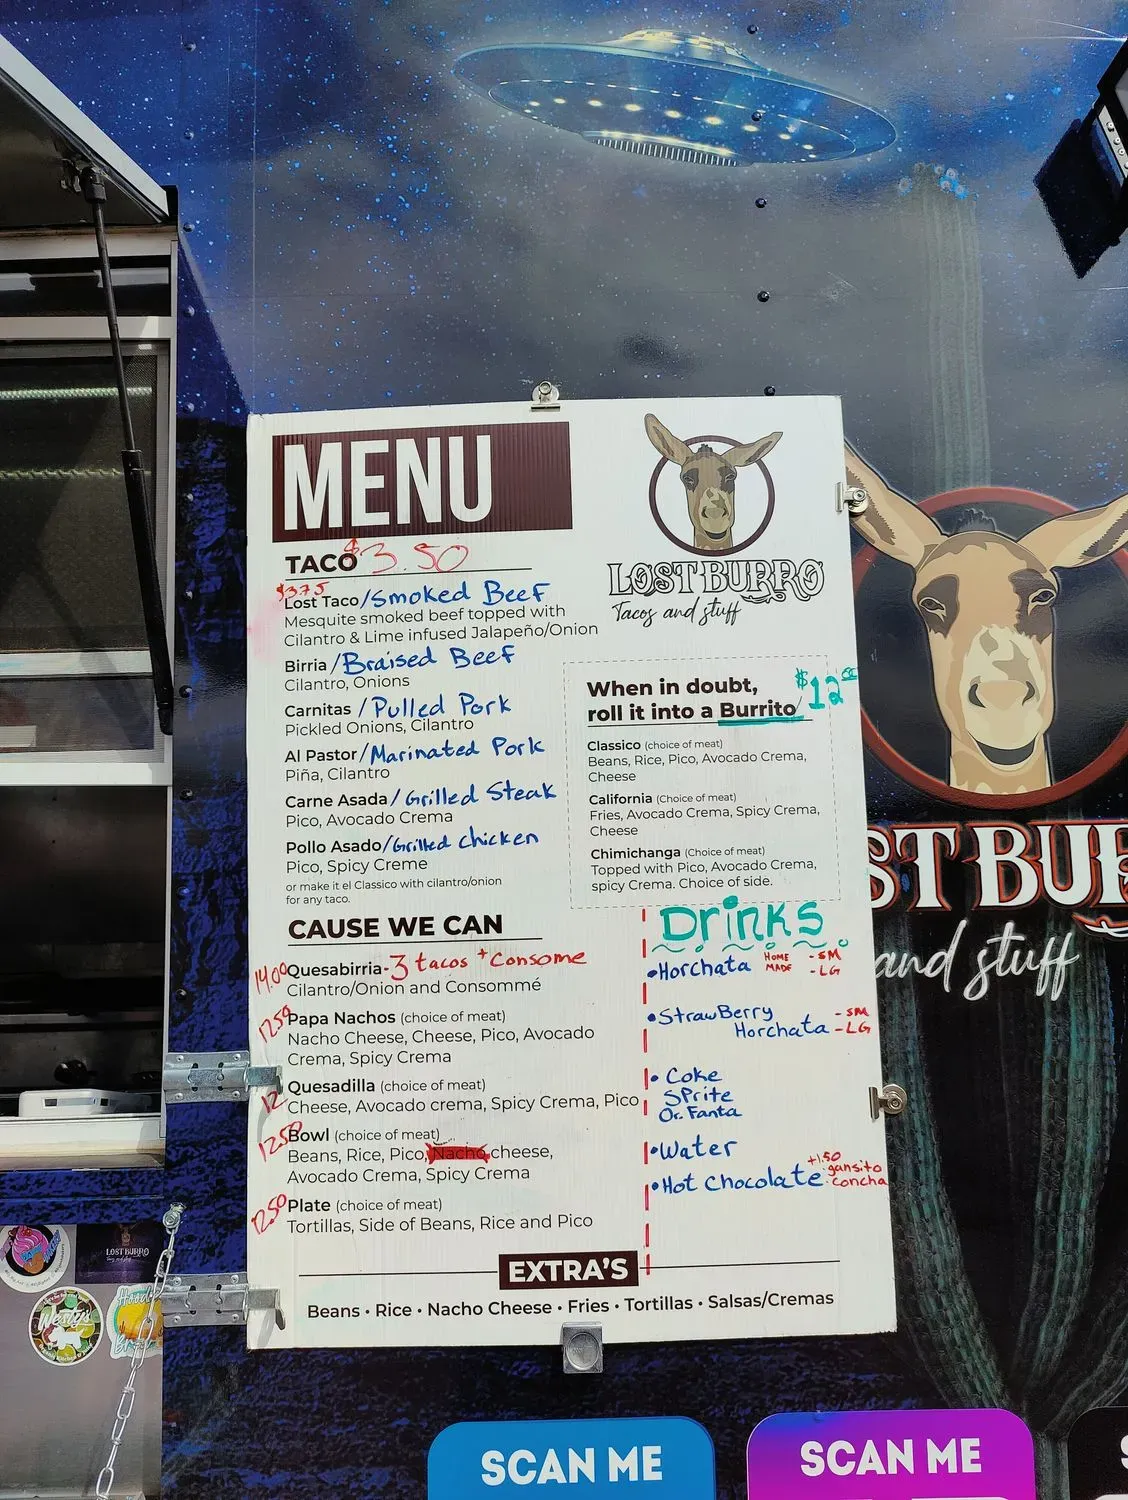 MENU
TACO $3.50
$3.75
Lost Taco/Smoked Beef
Mesquite smoked beef topped with
Cilantro & Lime infused Jalapeño/Onion
Birria/Braised Beef
Cilantro, Onions
Carnitas /Pulled Pork
Pickled Onions, Cilantro
Al Pastor/Marinated Pork
Piña, Cilantro
Carne Asada/Grilled Steak
Pico, Avocado Crema
Pollo Asado/Grilled Chicken
Pico, Spicy Creme
or make it el Classico with cilantro/onion
for any taco.
LOST BURRO
Tacos and stuff
When in doubt,
roll it into a Burrito/ $12.00
Classico (choice of meat)
Beans, Rice, Pico, Avocado Crema,
Cheese
California (Choice of meat)
Fries, Avocado Crema, Spicy Crema,
Cheese
Chimichanga (Choice of meat)
Topped with Pico, Avocado Crema,
spicy Crema. Choice of side.
CAUSE WE CAN
14.00 Quesabirria-3 tacos + Consome
Cilantro/Onion and Consommé
12.50 Papa Nachos (choice of meat)
Nacho Cheese, Cheese, Pico, Avocado
Crema, Spicy Crema
12 Quesadilla (choice of meat)
Cheese, Avocado crema, Spicy Crema, Pico
12.50 Bowl (choice of meat)
Beans, Rice, Pico, Nacho cheese,
Avocado Crema, Spicy Crema
12.50 Plate (choice of meat)
Tortillas, Side of Beans, Rice and Pico
Drinks
•Horchata HOME MADE -SM -LG
•StrawBerry -SM
Horchata -LG
• Coke
Sprite
Or. Fanta
•Water
•Hot Chocolate +1.50 gansito concha
EXTRA'S
Beans • Rice • Nacho Cheese • Fries • Tortillas • Salsas/Cremas
ST BUR
and stuff
LOST BURRO
SCAN ME
SCAN ME